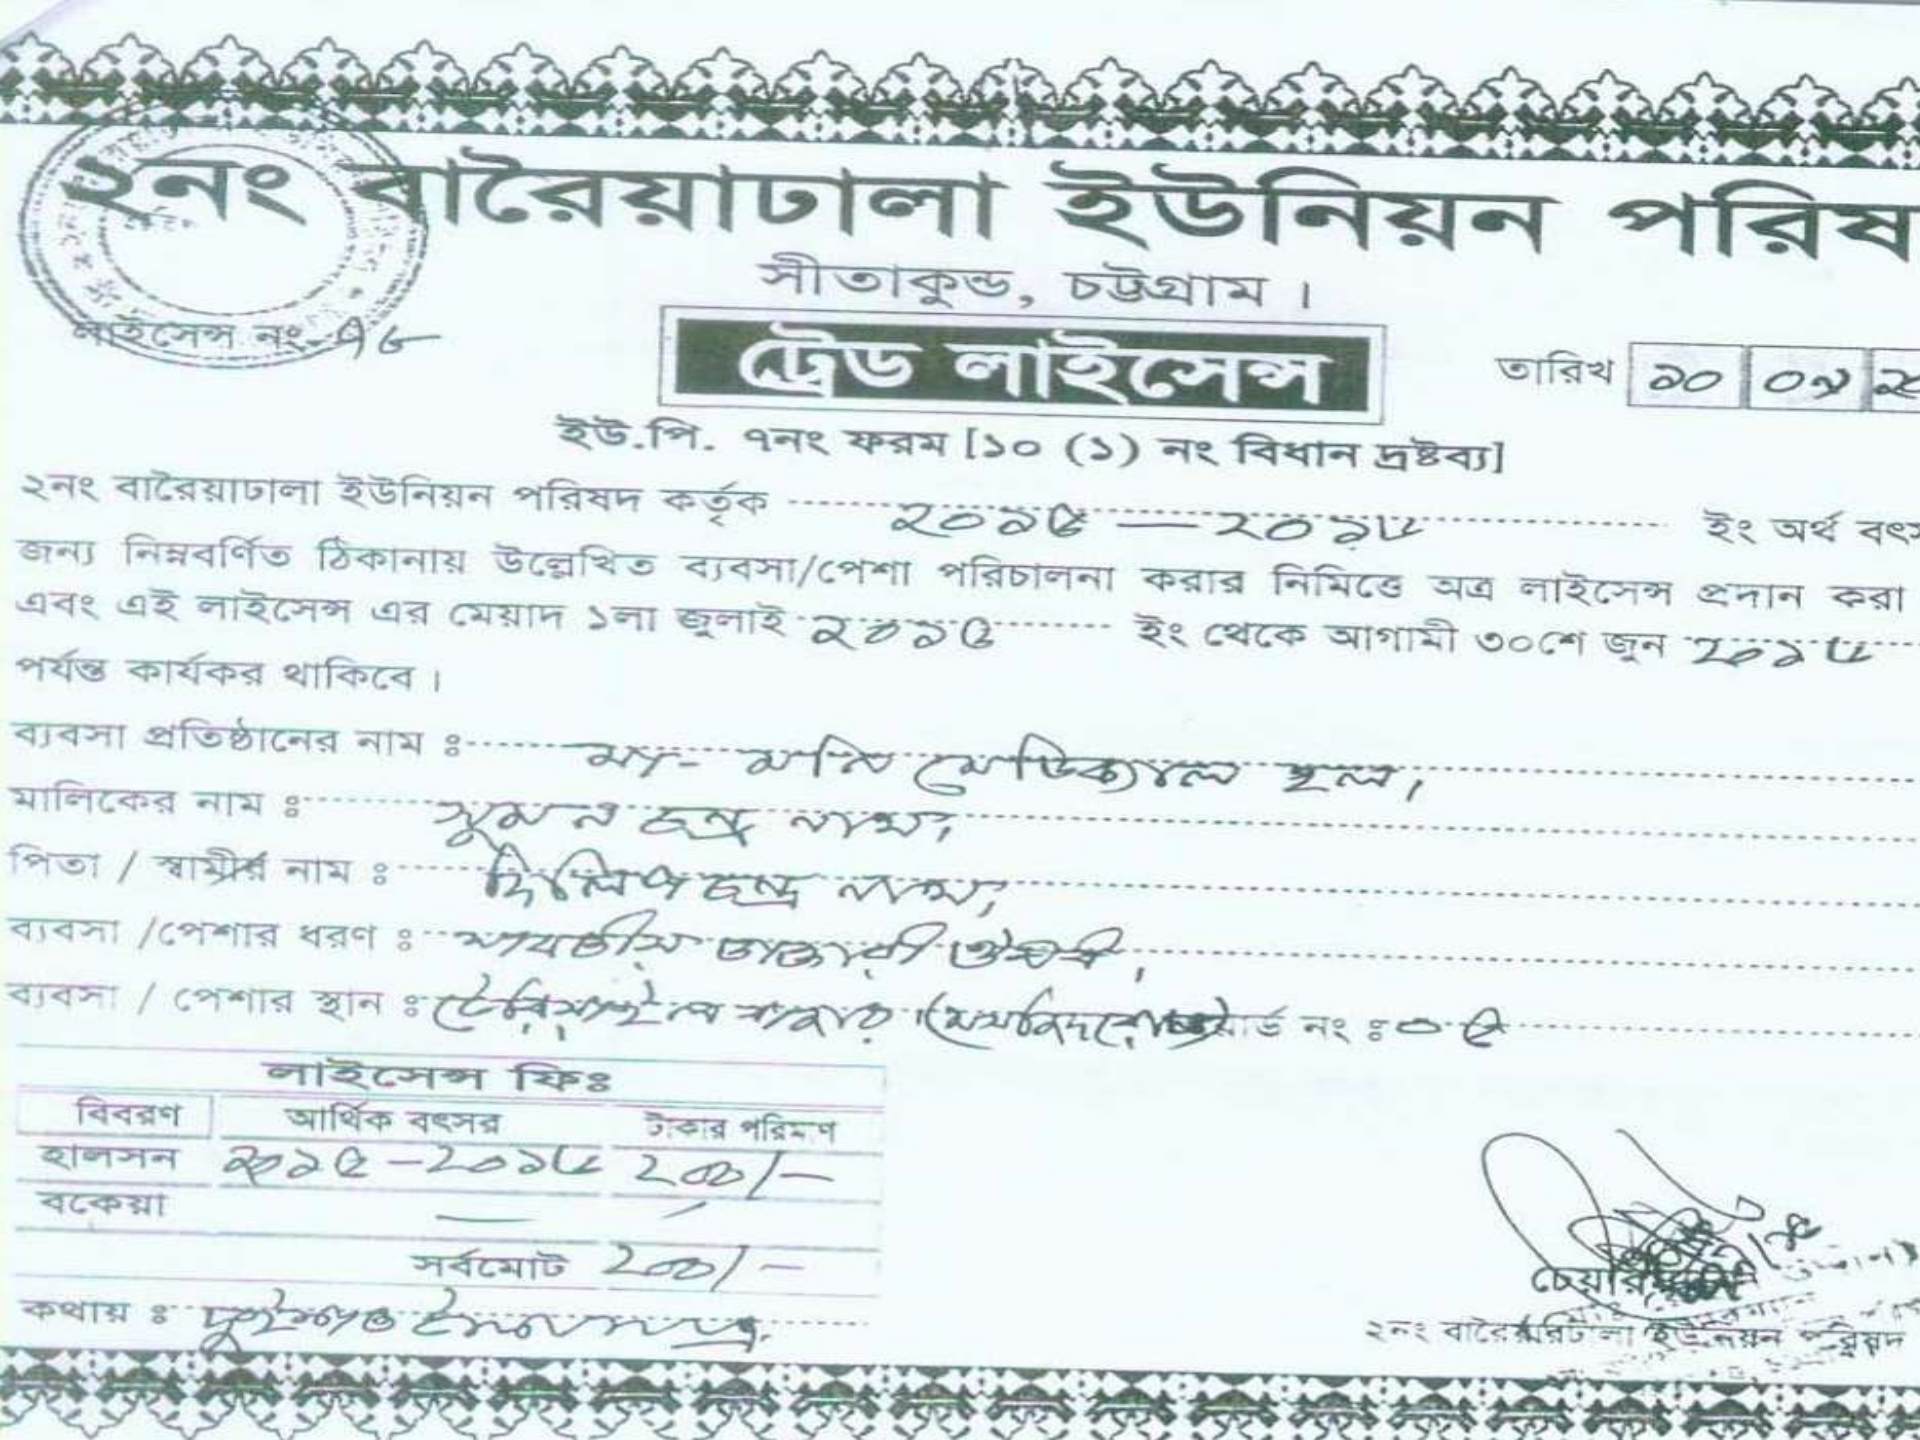 ২নং বারৈয়াঢালা ইউনিয়ন পরিষ
সীতাকুন্ড, চট্টগ্রাম।
লাইসেন্স নং- ৭৬
ট্রেড লাইসেন্স
তারিখ ১০ ০৯
ইউ.পি. ৭নং ফরম [১০ (১) নং বিধান দ্রষ্টব্য]
২নং বারৈয়াঢালা ইউনিয়ন পরিষদ কর্তৃক ২০১৫ — ২০১৬ ইং অর্থ বৎস
জন্য নিম্নবর্ণিত ঠিকানায় উল্লেখিত ব্যবসা/পেশা পরিচালনা করার নিমিত্তে অত্র লাইসেন্স প্রদান করা
এবং এই লাইসেন্স এর মেয়াদ ১লা জুলাই ২০১৫ ইং থেকে আগামী ৩০শে জুন ২০১৬
পর্যন্ত কার্যকর থাকিবে।
ব্যবসা প্রতিষ্ঠানের নাম ঃ মা- মনি মেডিক্যাল হল।
মালিকের নাম ঃ সুমন চন্দ্র নাথ।
পিতা / স্বামীর নাম ঃ দিলিপ চন্দ্র নাথ।
ব্যবসা /পেশার ধরণ ঃ যাবতীয় ডাক্তারী ঔষধ।
ব্যবসা / পেশার স্থান ঃ টেরিয়াইল বাজার ওয়ার্ড নং ঃ ০৫
লাইসেন্স ফিঃ
বিবরণ আর্থিক বৎসর টাকার পরিমাণ
হালসন ২০১৫ - ২০১৬ ২০০/-
বকেয়া —
সর্বমোট ২০০/-
কথায় ঃ দুইশত টাকা মাত্র।
চেয়ারম্যান
২নং বারৈয়াঢালা ইউনিয়ন পরিষদ